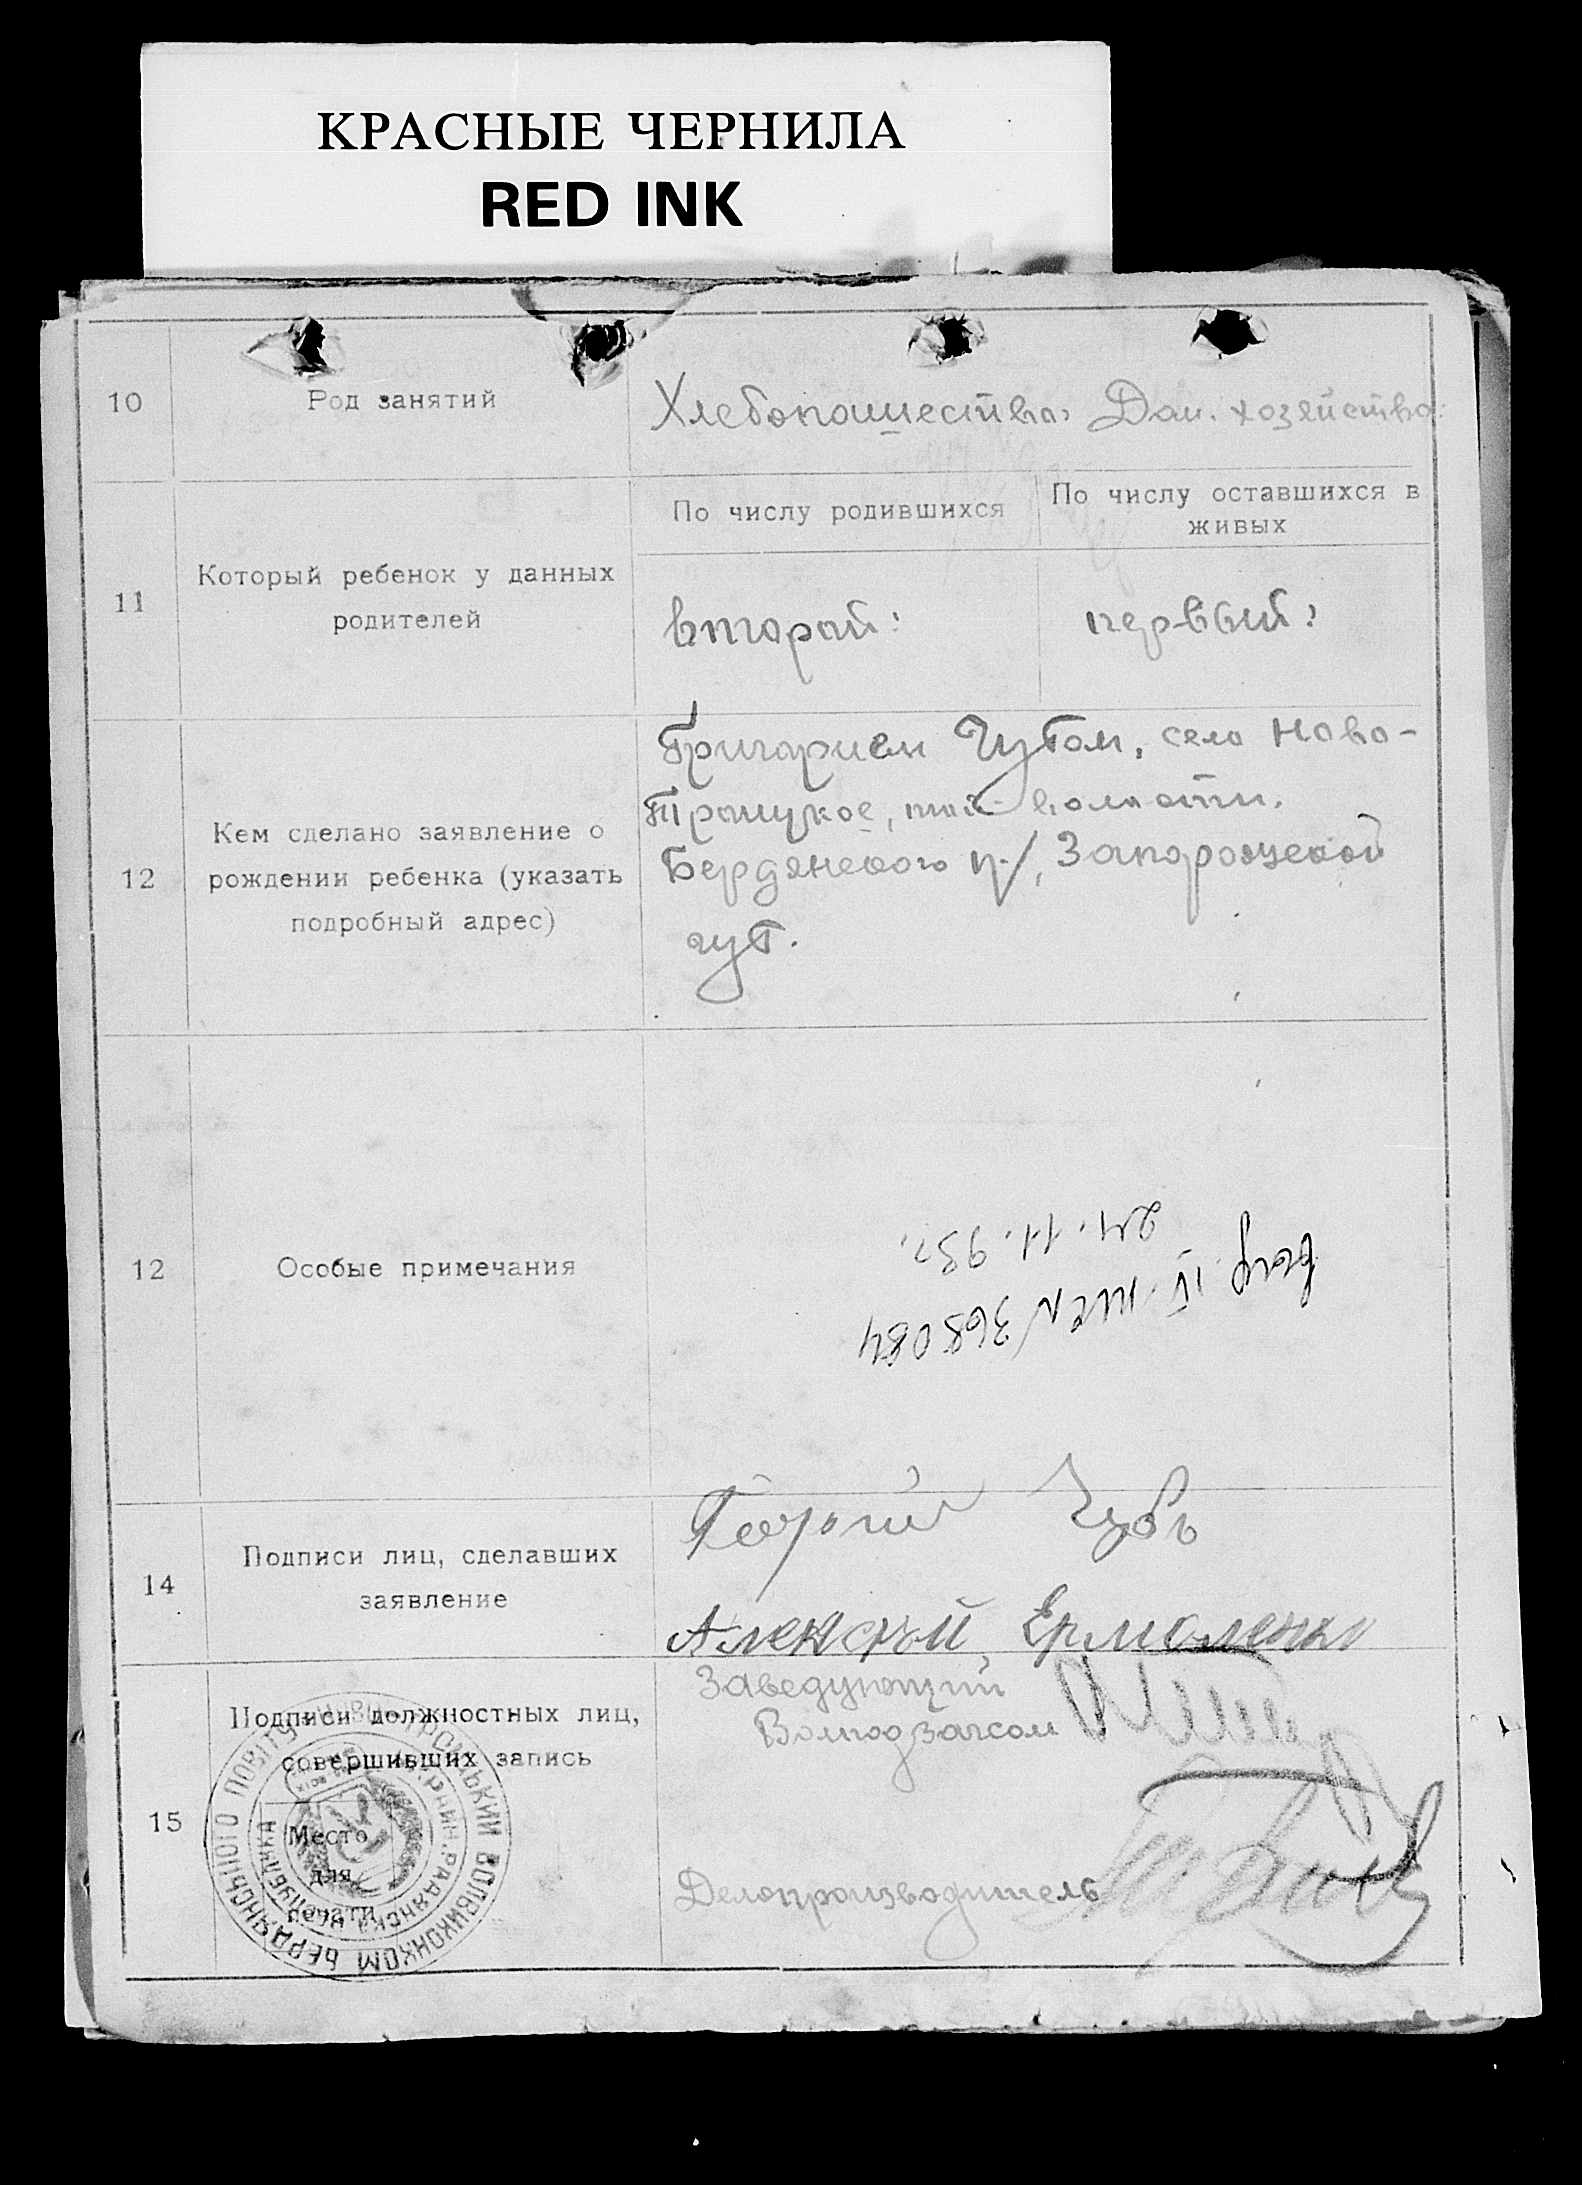 КРАСНЫЕ ЧЕРНИЛА
RED INK
10
Род занятий
Хлебопашества: Дом. хозяйства:
11
Который ребенок у данных
родителей
По числу родившихся
По числу оставшихся в
живых
второй:
первый:
12
Кем сделано заявление о
рождении ребенка (указать
подробный адрес)
Григорием Чубом, село Ново-
Троицкое, той волости.
Бердянского у/, Запорожской
губ.
12
Особые примечания
24.11.93г.
368084
14
Подписи лиц, сделавших
заявление
Георгий Чубъ
Алексѣй Ермоленко
15
Подписи должностных лиц,
совершивших запись
Место
для
печати
Заведующий
Волподзагсом
Делопроизводитель
ВОЛВИКОНКОМ БЕРДЯНСЬКОГО ПОВІТУ